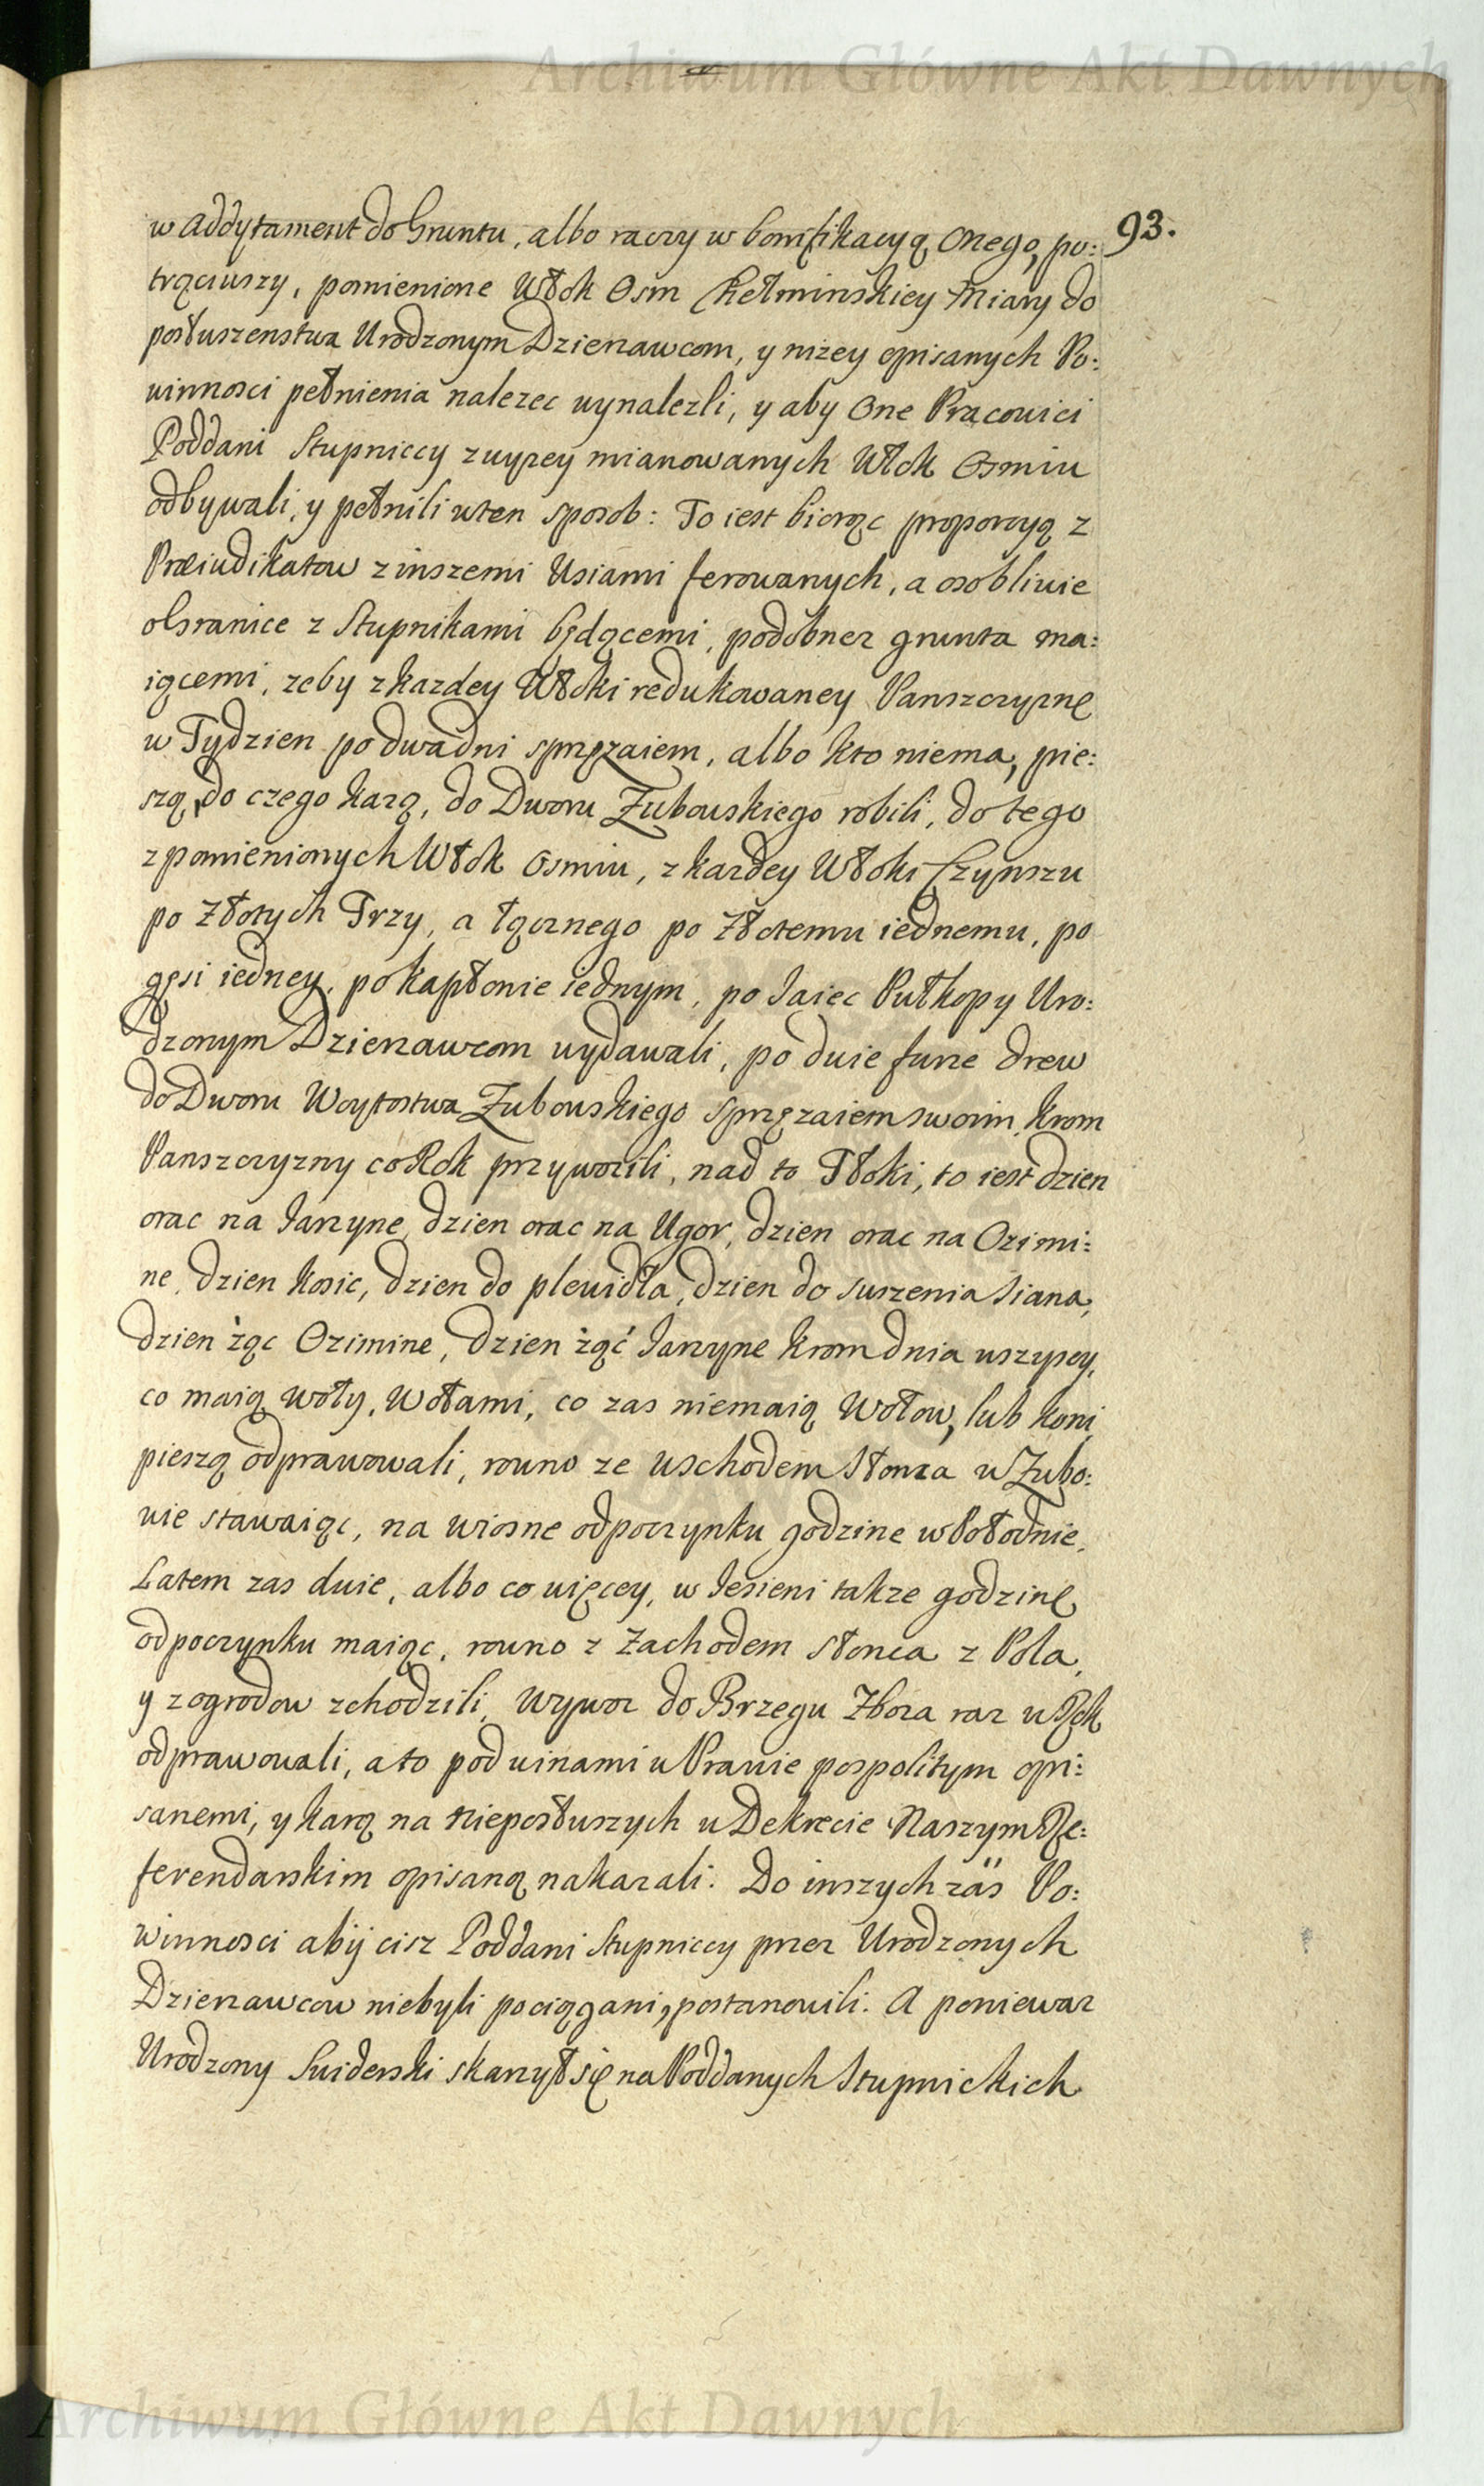 Archiwum Główne Akt Dawnych
93.
w addytament do Gruntu, albo raczy w bonifikacyą Onego, po:
trąciwszy, pomienione Włok Osm Chełminskiey Miary do
posłuszenstwa Urodzonym Dzierzawcom, y nizey opisanych Po:
winnosci pełnienia nalezec wynalezli, y aby One Pracowici
Poddani Stupniccy zwyzey mianowanych Włok Osmiu
odbywali, y pełnili wten sposob: To iest biorąc proporcyą z
Præiudikatow zinszemi Wsiami ferowanych, a osobliwie
oGranice z Stupnikami będącemi, podobnez grunta ma:
iącemi, zeby zkazdey Włoki redukowaney Panszczyznę
w Tydzien po dwa dni sprzęzaiem, albo kto niema, pie:
szą, do czego kazą, do Dworu Zubowskiego robili, do tego
zpomienionych Włok Osmiu, z kazdey Włoki Czynszu
po Złotych Trzy, a łącznego po Złotemu iednemu, po
gęsi iedney, po kapłonie iednym, po Jaiec Pułkopy Uro:
dzonym Dzierzawcom wydawali, po dwie furze drew
do Dworu Woytostwa Zubowskiego sprzęzaiem swoim, krom
Panszczyzny co Rok przywozili, nad to Tłoki, to iest dzien
orac na Jarzyne, dzien orac na Ugor, dzien orac na Ozimi:
ne, dzien kosic, dzien do plewidła, dzien do suszenia siana,
dzien żąc Ozimine, dzien żąć Jarzyne krom dnia wszyscy,
co maią woły, Wołami, co zas niemaią Wołow, lub koni,
pieszą odprawowali, rowno ze wschodem Słonca w Zubo:
wie stawaiąc, na wiosne odpoczynku godzine w Połodnie,
Latem zas dwie, albo co więcey, w Jesieni takze godzinę
odpoczynku maiąc, rowno z Zachodem słonca z Pola,
y z ogrodow zchodzili, Wywoz do Brzegu Zboza raz w Rok
odprawowali, a to pod winami w Prawie pospolitym opi:
sanemi, y karą na nieposłuszych w Dekrecie Naszym Re:
ferendarskim opisaną nakazali. Do inszych zas Po:
winnosci abÿ cisz Poddani Stupniccy przez Urodzonych
Dzierzawcow niebyli pociągani, postanowili. A poniewaz
Urodzony Swiderski skarzył się na Poddanych Stupnickich
Archiwum Główne Akt Dawnych